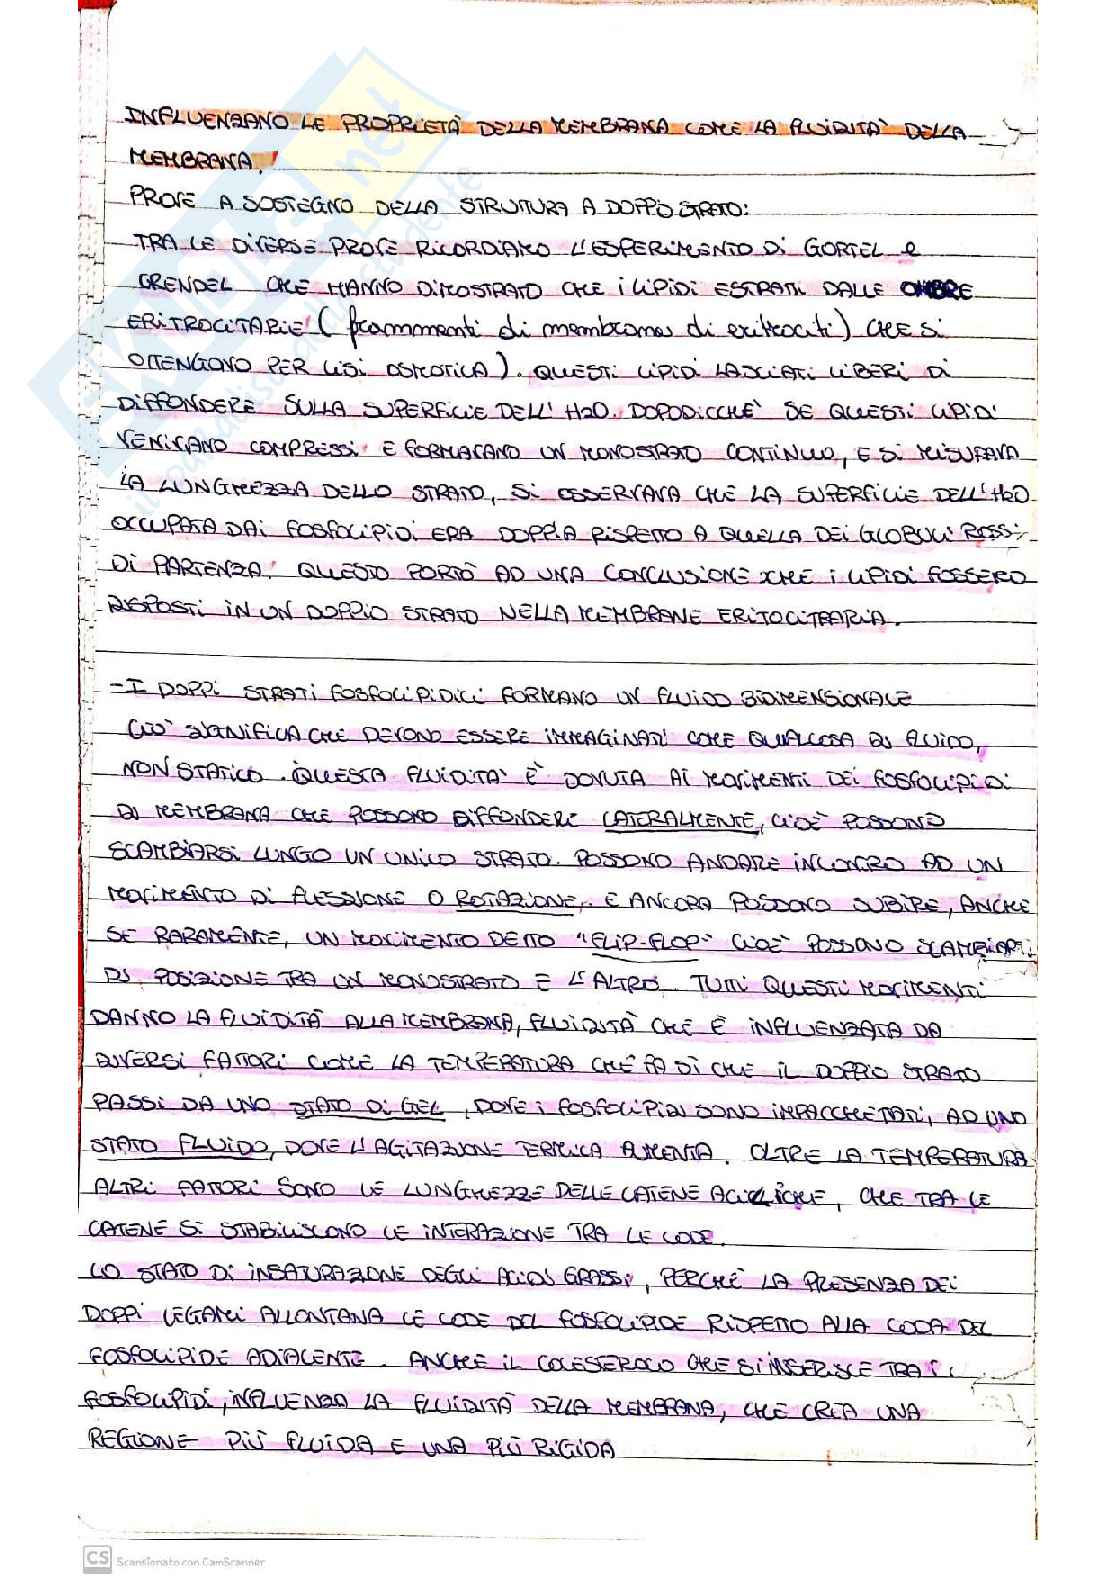 INFLUENZANO LE PROPRIETÀ DELLA MEMBRANA COME LA FLUIDITÀ DELLA
MEMBRANA.
PROVE A SOSTEGNO DELLA STRUTURA A DOPPIO STRATO:
TRA LE DIVERSE PROVE RICORDIAMO L'ESPERIMENTO DI GORTEL e
GRENDEL CHE HANNO DIMOSTRATO CHE I LIPIDI ESTRATTI DALLE OMBRE
ERITROCITARIE (frammenti di membrana di eritrociti) CHE SI
OTTENGONO PER LISI OSMOTICA). QUESTI LIPIDI LASCIATI LIBERI DI
DIFFONDERE SULLA SUPERFICIE DELL'H2O. DOPODICCHÈ SE QUESTI LIPIDI
VENIVANO COMPRESSI E FORMAVANO UN MONOSTRATO CONTINUO, E SI MISURAVA
LA LUNGHEZZA DELLO STRATO, SI OSSERVAVA CHE LA SUPERFICIE DELL'H2O
OCCUPATA DAI FOSFOLIPIDI ERA DOPPIA RISPETTO A QUELLA DEI GLOBULI ROSSI
DI PARTENZA. QUESTO PORTÒ AD UNA CONCLUSIONE CHE I LIPIDI FOSSERO
DISPOSTI IN UN DOPPIO STRATO NELLA MEMBRANE ERITOCITRARIA.
- I DOPPI STRATI FOSFOLIPIDICI FORMANO UN FLUIDO BIDIMENSIONALE
CIÒ SIGNIFICA CHE DEVONO ESSERE IMMAGINATI COME QUALCOSA DI FLUIDO,
NON STATICO. QUESTA FLUIDITÀ È DOVUTA AI MOVIMENTI DEI FOSFOLIPIDI
DI MEMBRANA CHE POSSONO DIFFONDERE LATERALMENTE, CIOÈ POSSONO
SCAMBIARSI LUNGO UN UNICO STRATO. POSSONO ANDARE INCONTRO AD UN
MOVIMENTO DI FLESSIONE O ROTAZIONE, E ANCORA POSSONO SUBIRE, ANCHE
SE RARAMENTE, UN MOVIMENTO DETTO "FLIP-FLOP" CIOÈ POSSONO SCAMBIARSI
DI POSIZIONE TRA UN MONOSTRATO E L'ALTRO. TUTTI QUESTI MOVIMENTI
DANNO LA FLUIDITÀ ALLA MEMBRANA, FLUIDITÀ CHE È INFLUENZATA DA
DIVERSI FATTORI COME LA TEMPERATURA CHE FA DÌ CHE IL DOPPIO STRATO
PASSI DA UNO STATO DI GEL, DOVE I FOSFOLIPIDI SONO IMPACCHETTATI, AD UNO
STATO FLUIDO, DOVE L'AGITAZIONE TERMICA AUMENTA. OLTRE LA TEMPERATURA
ALTRI FATTORI SONO LE LUNGHEZZE DELLE CATENE ACILICHE, CHE TRA LE
CATENE SI STABILISCONO LE INTERAZIONE TRA LE CODE.
LO STATO DI INSATURAZIONE DEGLI ACIDI GRASSI, PERCHÈ LA PRESENZA DEI
DOPPI LEGAMI ALLONTANA LE CODE DEL FOSFOLIPIDE RISPETTO ALLA CODA DEL
FOSFOLIPIDE ADIACENTE. ANCHE IL COLESTEROLO CHE SI INSERISCE TRA I
FOSFOLIPIDI, INFLUENZA LA FLUIDITÀ DELLA MEMBRANA, CHE CREA UNA
REGIONE PIÙ FLUIDA E UNA PIÙ RIGIDA
CS Scansionato con CamScanner